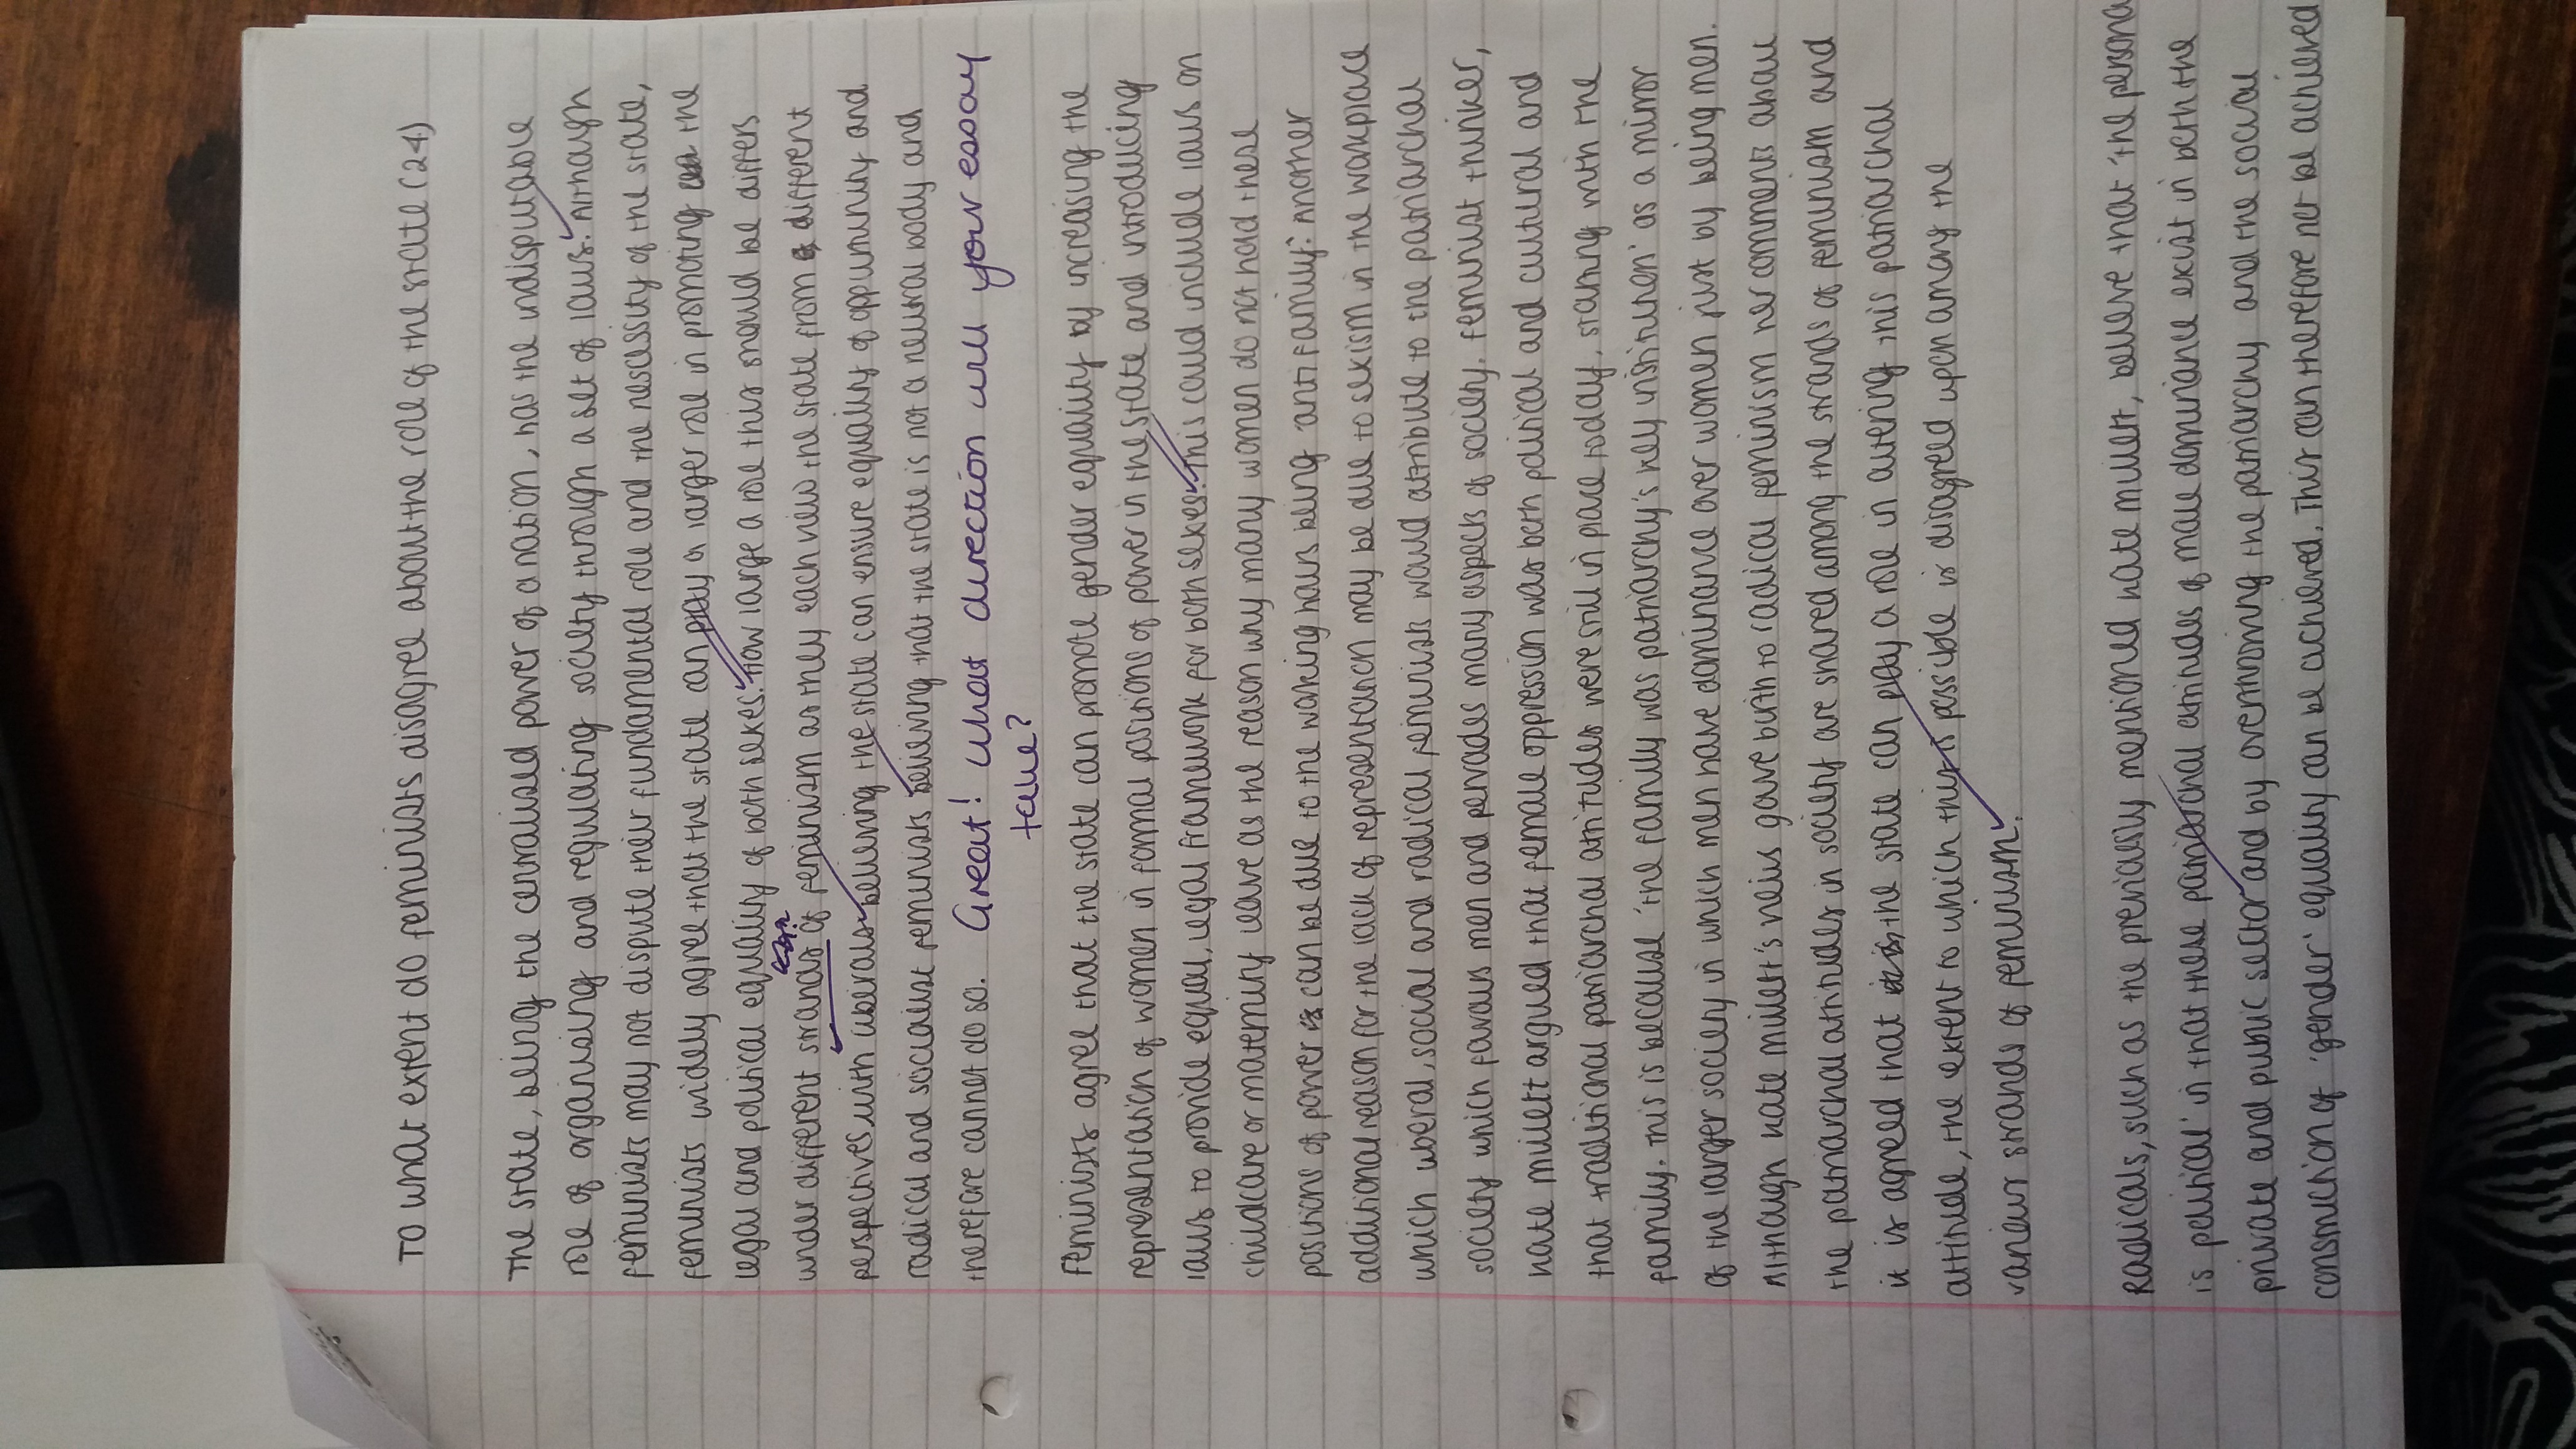 To what extent do feminists disagree about the role of the state (24)
The state, being the centralised power of a nation, has the indisputable
role of organising and regulating society through a set of laws. Although
feminists may not dispute their fundamental role and the nescessity of the state,
feminists widely agree that the state can play a larger role in promoting the
legal and political equality of both sexes. How large a role this should be differs
under different strands of feminism as they each view the state from different
perspectives, with liberals believing the state can ensure equality of oppurtunity and
radical and socialist feminists believing that the state is not a neutral body and
therefore cannot do so. Great! What direction will your essay
take?
Feminists agree that the state can promote gender equality by increasing the
representation of women in formal positions of power in the state and introducing
laws to provide equal, legal framework for both sexes. This could include laws on
childcare or maternity leave as the reason why many women do not hold these
positions of power can be due to the working hours being 'anti family'. Another
additional reason for the lack of representation may be due to sexism in the workplace
which liberal, social and radical feminists would attribute to the patriarchal
society which favours men and pervades many aspects of society. Feminist thinker,
Kate Millett argued that female oppression was both political and cultural and
that traditional patriarchal attitudes were still in place today, starting with the
family. This is because 'the family was patriarchy's key institution' as a mirror
of the larger society in which men have dominance over women just by being men.
Although Kate Millett's views gave birth to radical feminism her comments about
the patriarchal attitudes in society are shared among the strands of feminism and
it is agreed that the state can play a role in altering this patriarchal
attitude, the extent to which this is possible is disagreed upon among the
various strands of feminism.
Radicals, such as the previously mentioned Kate Millett, believe that 'the persona
is political' in that these patriarchal attitudes of male dominance exist in both the
private and public sector and by overthrowing the patriarchy and the social
construction of 'gender' equality can be achieved. This can therefore not be achieved